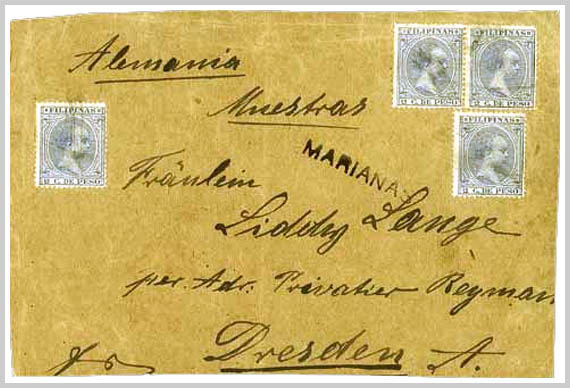 FILIPINAS
FILIPINAS
Alemania
C. DE PESO
C. DE PESO
Muestras
FILIPINAS
FILIPINAS
MARIANAS
Fräulein
C. DE PESO
C. DE PESO
Liddy Lange
per Adr. Privatier Reyman
Dresden A.